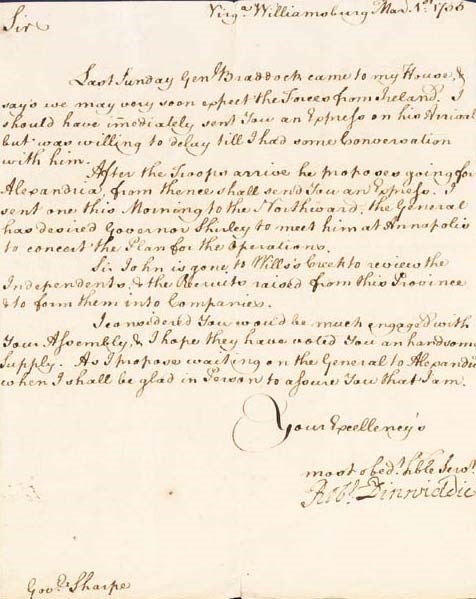 Sir
Virgª. Williamsburg Mar. 1st. 1755
Last Sunday Genl. Braddock came to my House, &
says we may very soon expect the Forces from Ireland. I
should have imediately sent You an Express on his Arrival
but was willing to delay till I had some Conversation
with him.
After the Troops arrive he proposes going for
Alexandria, from thence shall send You an Express. I
sent one this Morning to the Northward; the General
has desired Governor Shirley to meet him at Annapolis
to concert the Plan for the Operations.
Sir John is gone to Wills's Creek to review the
Independents, & the Recruits raised from this Province
& to form them into Companies.
I considered You would be much engaged with
Your Assembly, & I hope they have voted You an handsome
Supply. As I propose waiting on the General to Alexandria
when I shall be glad in Person to assure You that I am.
Your Excellency's
most obedt. hble Servt.
Robt. Dinwiddie
Govr. Sharpe